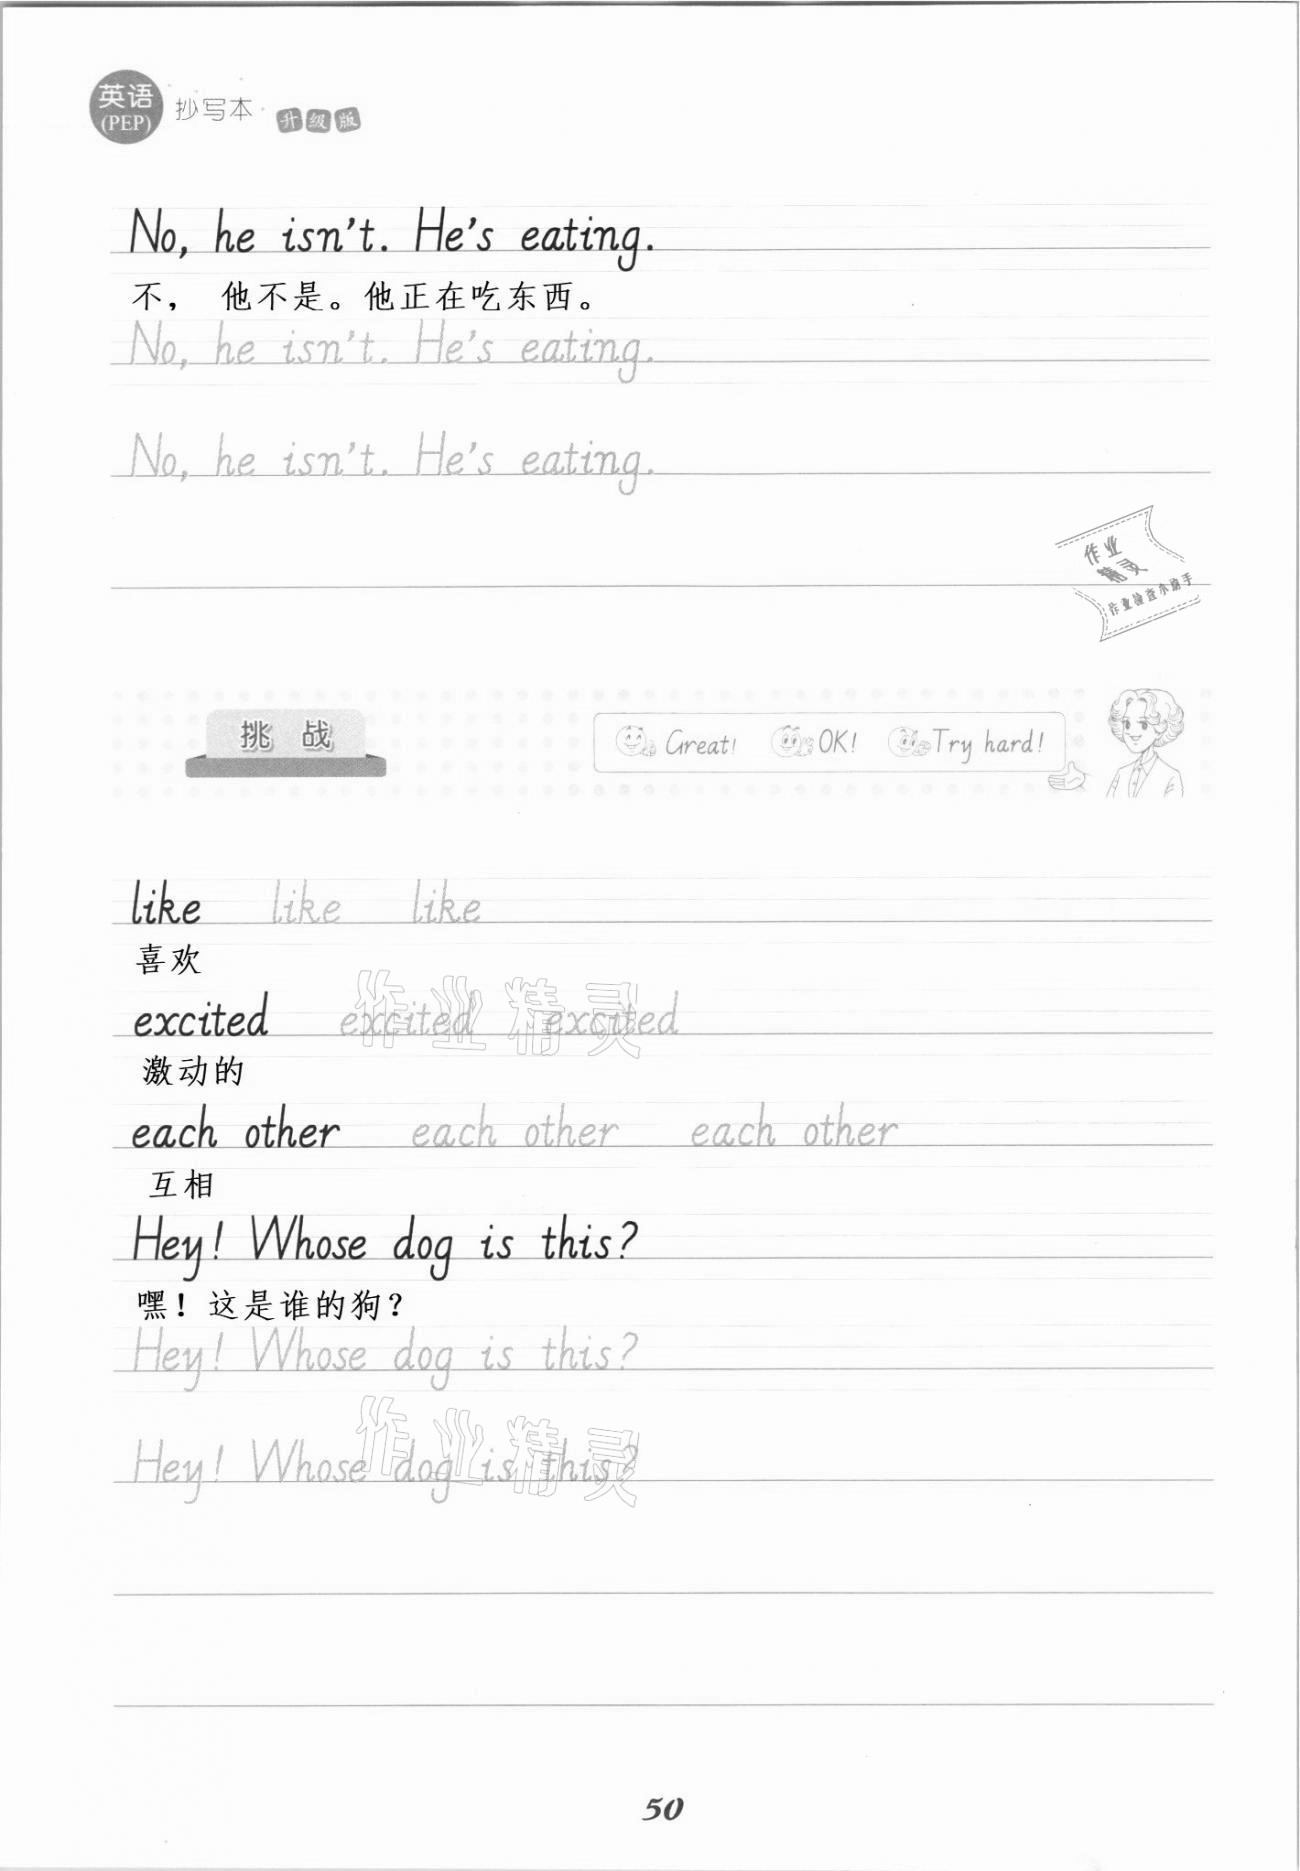 英语
(PEP)
抄写本
升级版
No, he isn't. He's eating.
不， 他不是。他正在吃东西。
No, he isn't. He's eating.
No, he isn't. He's eating.
作业
精灵
作业检查小助手
挑 战
Great! OK! Try hard!
like like like
喜欢
excited excited excited
作业精灵
激动的
each other each other each other
互相
Hey! Whose dog is this?
嘿！这是谁的狗？
Hey! Whose dog is this?
Hey! Whose dog is this?
作业精灵
50